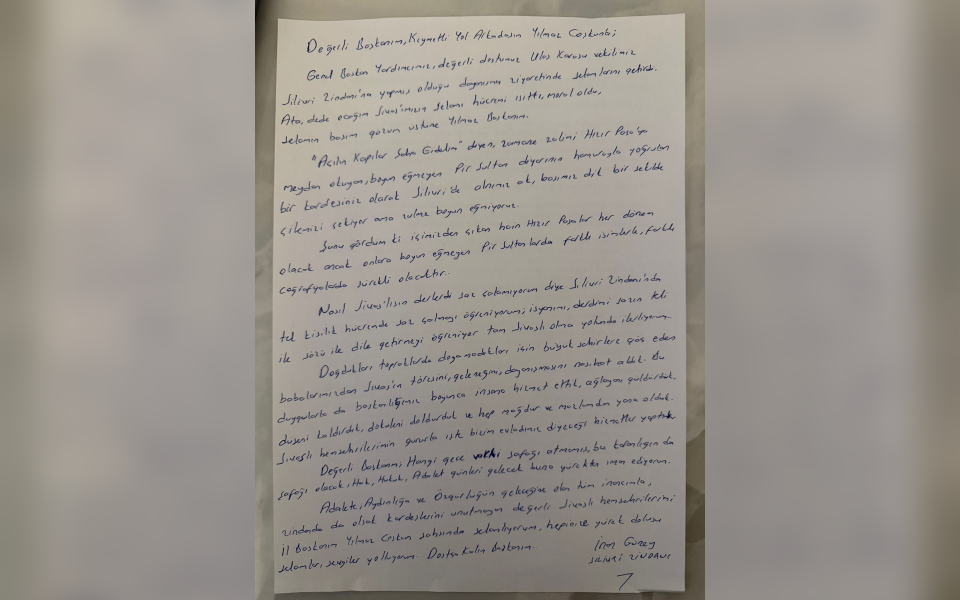 Değerli Başkanım, Kıymetli Yol Arkadaşım Yılmaz Coşkun;
Genel Başkan Yardımcımız, değerli dostumuz Ulaş Karasu vekilimiz
Silivri Zindanı'na yapmış olduğu dayanışma ziyaretinde selamlarını getirdi.
Ata, dede ocağım Sivas'ımızın selamı hücremi ısıttı, moral oldu,
selamın başım gözüm üstüne Yılmaz Başkanım.
"Açılın Kapılar Şaha Gidelim" diyen, zamane zalimi Hızır Paşa'ya
meydan okuyan, boyun eğmeyen Pir Sultan diyarının hamuruyla yoğrulan
bir kardeşiniz olarak Silivri'de alnımız ak, başımız dik bir şekilde
çilemizi çekiyor ama zulme boyun eğmiyoruz.
Şunu gördüm ki içimizden çıkan hain Hızır Paşalar her dönem
olacak ancak onlara boyun eğmeyen Pir Sultanlarda farklı isimlerle, farklı
coğrafyalarda sürekli olacaktır.
Nasıl Sivas'lısın derlerdi saz çalamıyorum diye Silivri Zindanı'nda
tek kişilik hücremde saz çalmayı öğreniyorum, isyanımı, derdimi sazın teli
ile sözü ile dile getirmeyi öğreniyor tam Sivaslı olma yolunda ilerliyorum.
Doğdukları topraklarda doyamadıkları için büyük şehirlere göç eden
babalarımızdan Sivas'ın töresini, geleneğini, dayanışmasını nasihat aldık. Bu
duygularla da başkanlığımız boyunca insana hizmet ettik, ağlayanı güldürdük,
düşeni kaldırdık, dökuleni doldurduk ve hep mağdur ve mazlumdan yana olduk.
Sivaslı hemşehrilerimin gururla işte bizim evladımız diyeceği hizmetler yaptık.
Değerli Başkanım; Hangi gece vakti şafağı atmamış, bu karanlığın da
şafağı olacak, Hak, Hukuk, Adalet günleri gelecek buna yürekten iman ediyorum.
Adalete, Aydınlığa ve Özgürlüğün geleceğine olan tüm inancımla,
zindanda da olsak kardeşlerini unutmayan değerli Sivaslı hemşehrilerimi
İl Başkanım Yılmaz Coşkun şahsında selamlıyorum, hepinize yürek dolusu
selamlar, sevgiler yolluyorum. Dostça Kalın Başkanım.
İnan Güney
SİLİVRİ ZİNDANI